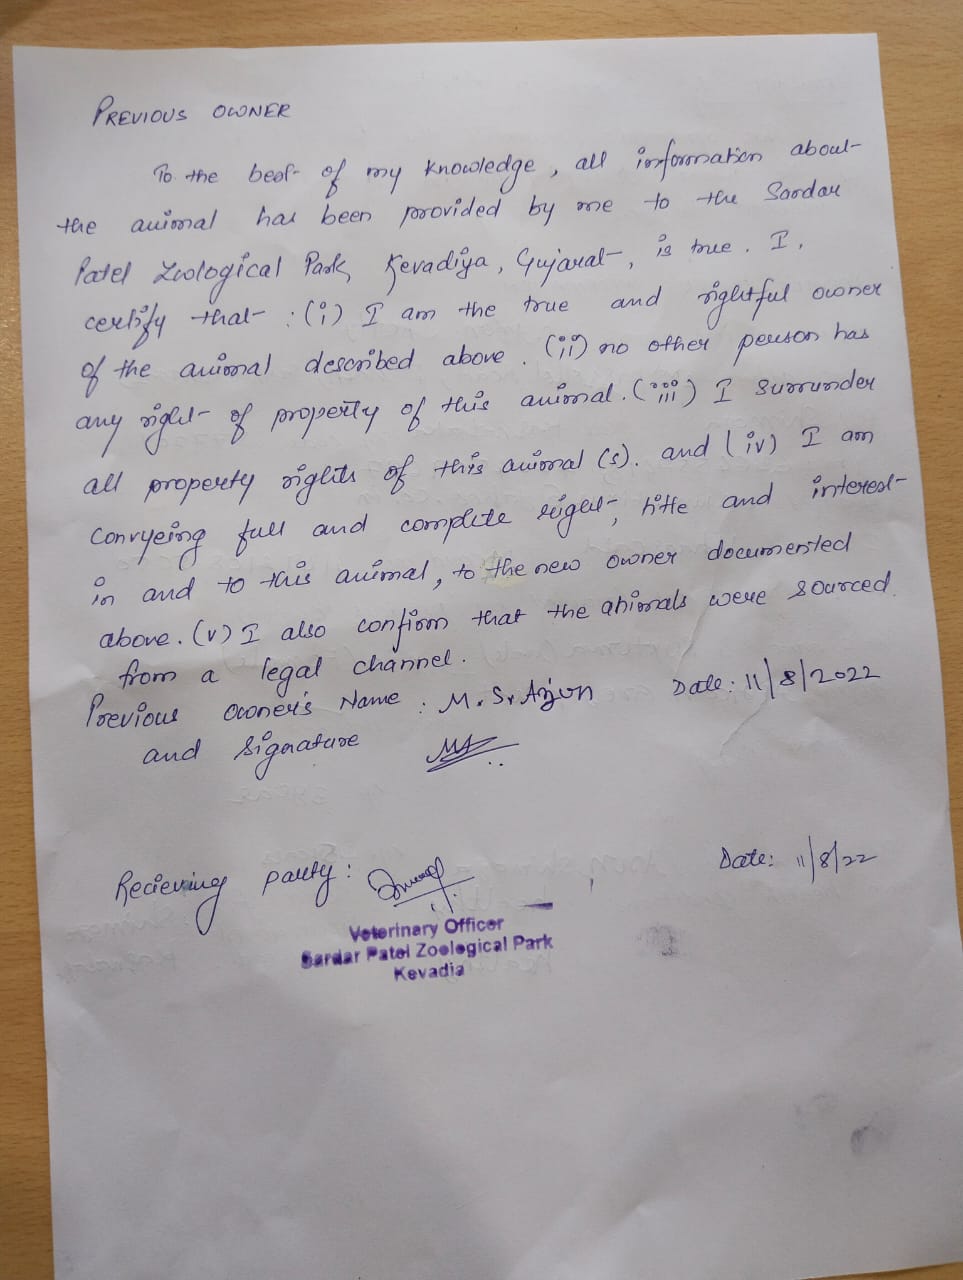 PREVIOUS OWNER
To the best of my knowledge, all information about
the animal has been provided by me to the Sardar
Patel Zoological Park, Kevadiya, Gujarat, is true. I,
certify that : (i) I am the true and rightful owner
of the animal described above. (ii) no other person has
any right of property of this animal. (iii) I Surrunder
all property rights of this animal (s). and (iv) I am
Convyeing full and complete right, title and interest
in and to this animal, to the new owner documented
above. (v) I also confirm that the animals were sourced
from a legal channel.
Previous owner's Name : M. S. Arjun Date: 11/8/2022
and Signature
Recieving party: Date: 11/8/22
Veterinary Officer
Sardar Patel Zoological Park
Kevadia